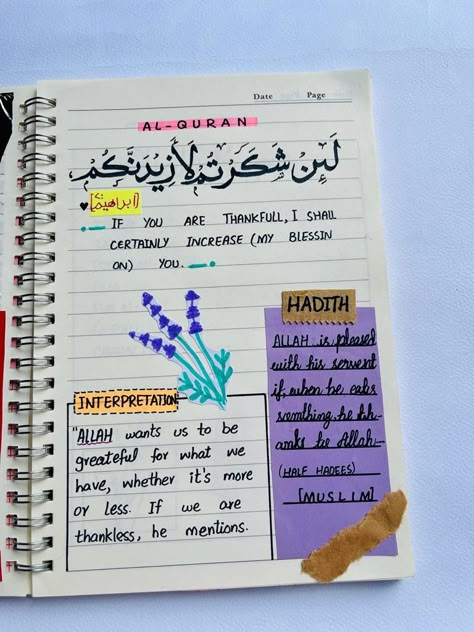 Date Page
AL-QURAN
لَئِنْ شَكَرْتُمْ لَأَزِيدَنَّكُمْ
[ابراھیم]
IF YOU ARE THANKFULL, I SHALL
CERTAINLY INCREASE (MY BLESSIN
ON) YOU.
INTERPRETATION
"ALLAH wants us to be
greateful for what we
have, whether it's more
or less. If we are
thankless, he mentions.
HADITH
ALLAH is pleased
with his servent
if when he eats
somthing he th-
anks to Allah
(HALF HADEES)
[MUSLIM]